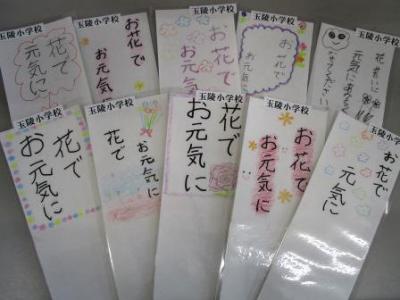 玉陵小学校
花で
元気に
玉陵小学校
お花で
お元気に
玉陵小学校
お花で
お元気に
玉陵小学校
お花で
お元気に
玉陵小学校
元気に
なってください
玉陵小学校
花で
お元気に
玉陵小学校
花で
お元気に
玉陵小学校
花で
お元気に
玉陵小学校
お花で
お元気に
玉陵小学校
お花で
元気に